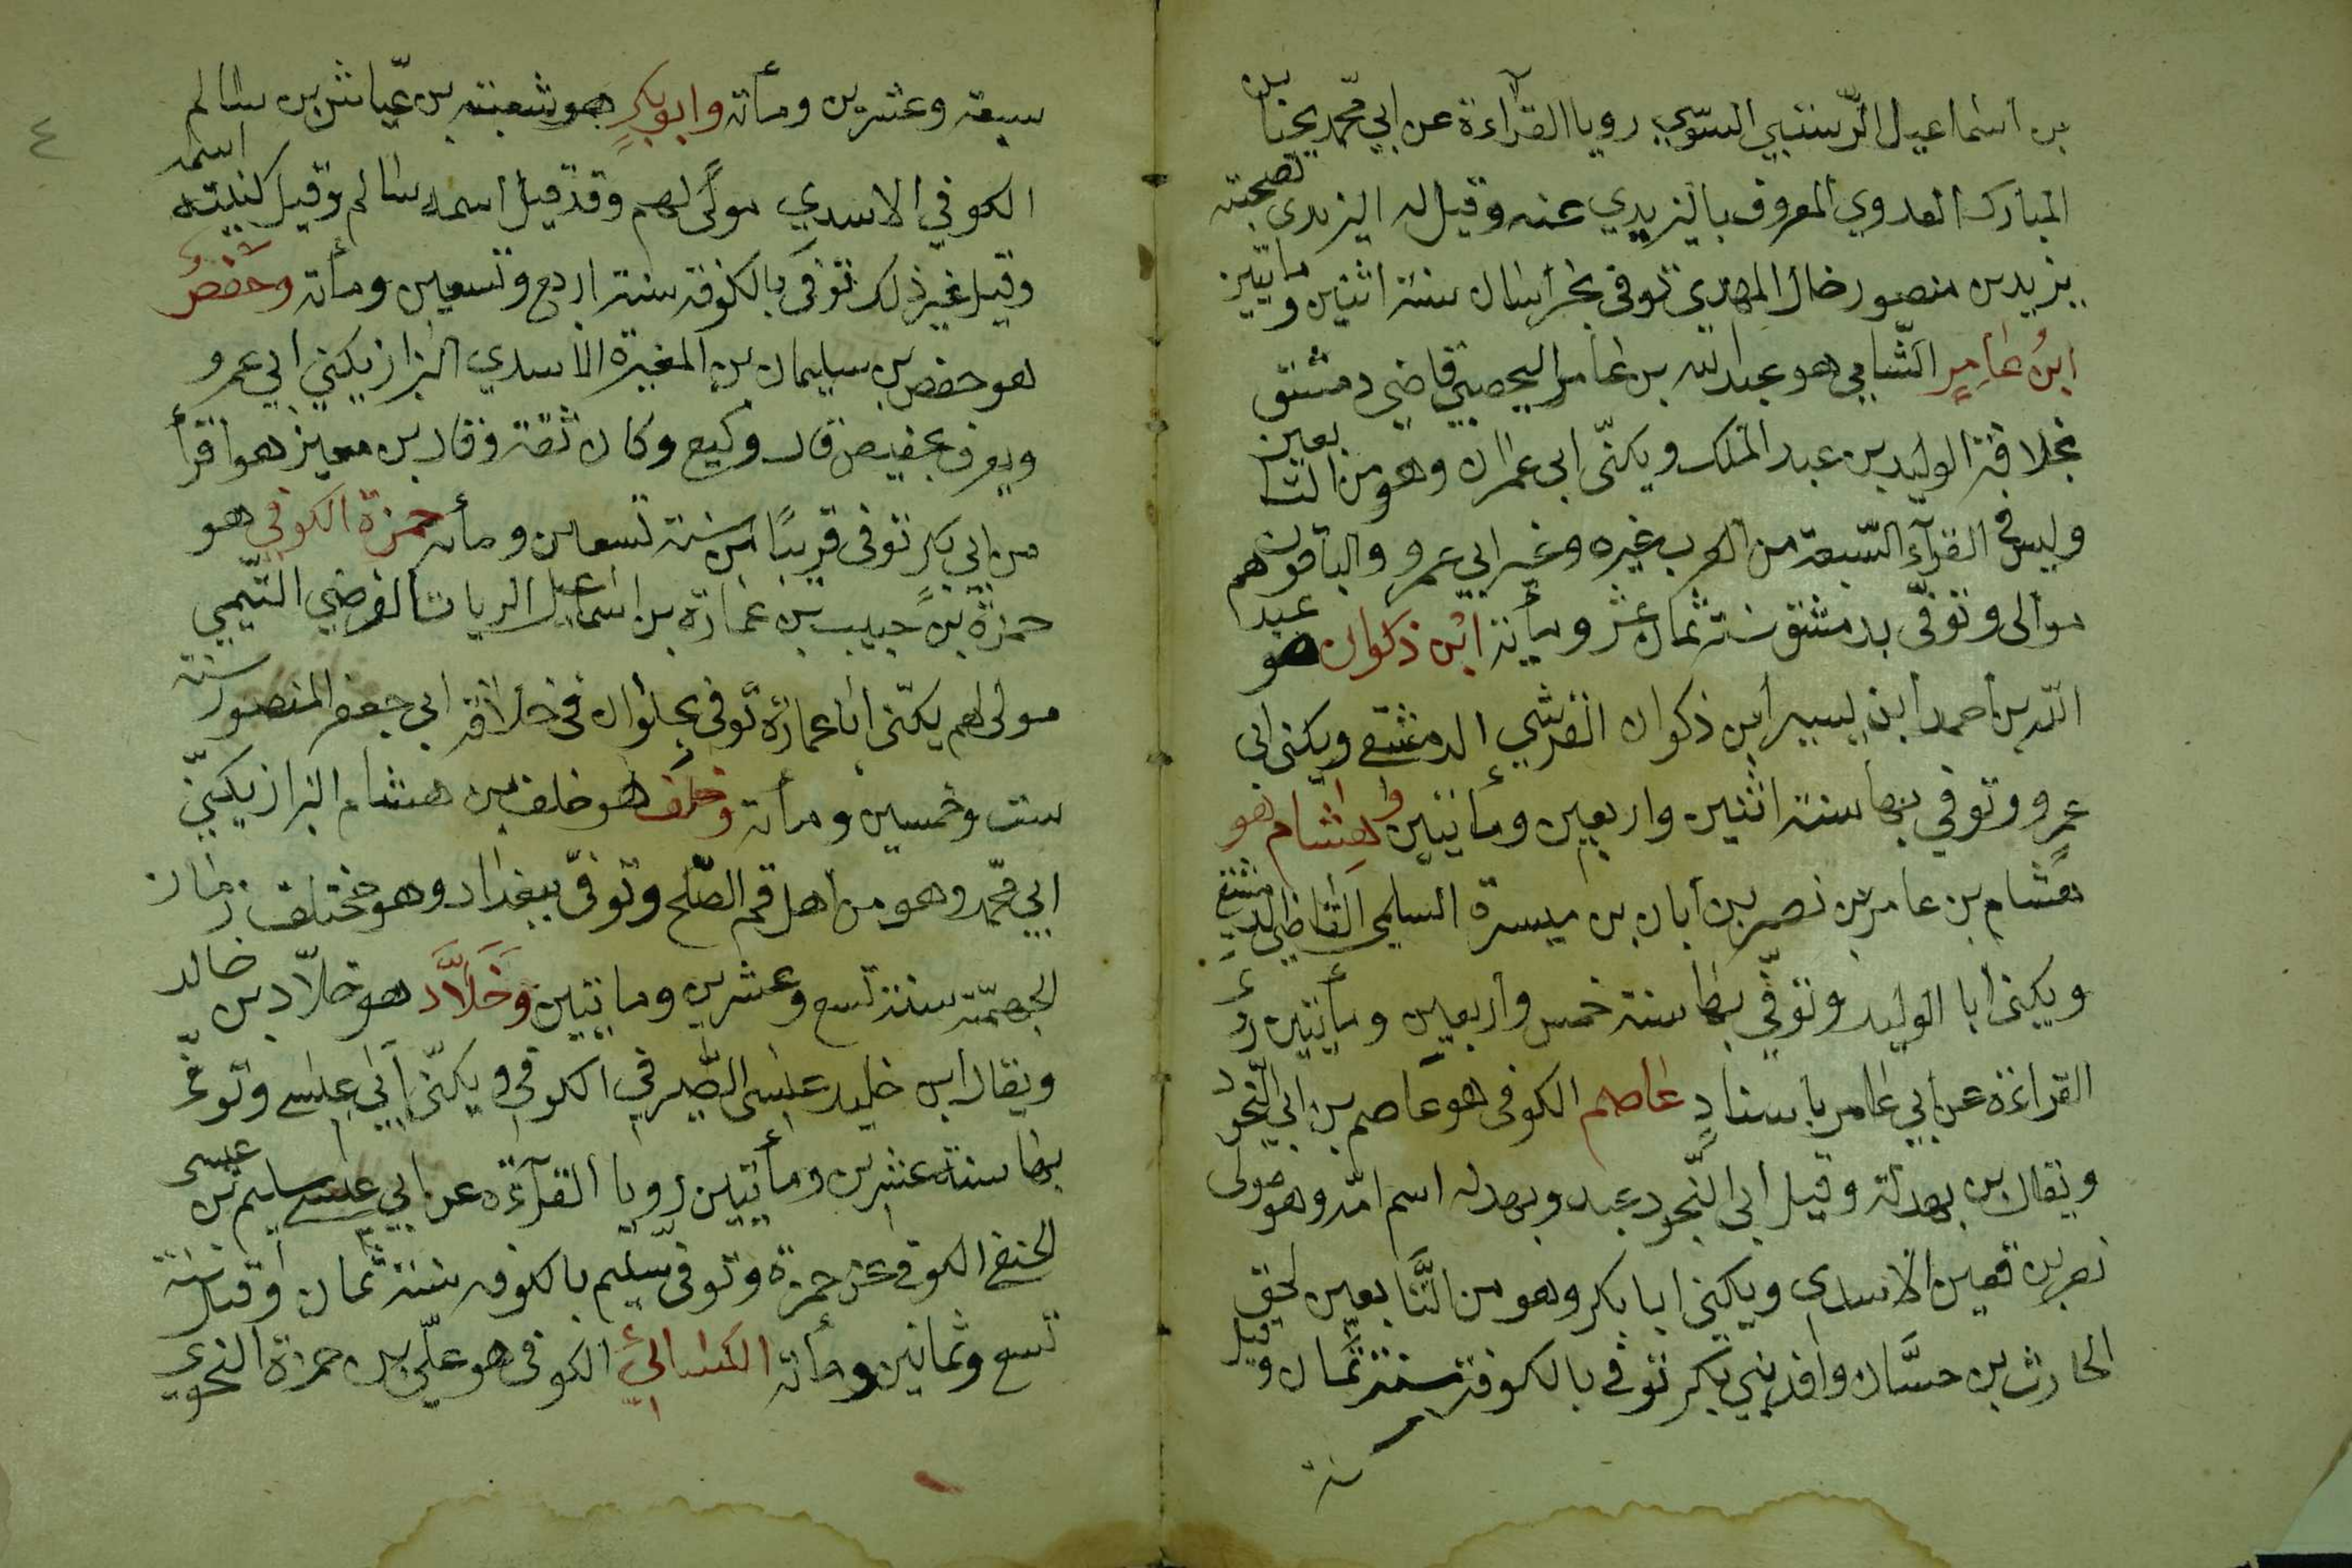 بن اسماعيل الرستبي السوسي رويا القرآءة عن ابي محمد يحيا بن
المبارك العدوي المعروف باليزيدي عنه وقيل له اليزيدي لصحبته
يزيد بن منصور خال المهدي توفى بخراسان سنة اثنين و مأتيين
ابن عامر الشامي هو عبد الله بن عامر اليحصبي قاضي دمشق
بخلافة الوليد بن عبد الملك ويكنّى ابى عمران وهو من التا بعين
وليس في القرآء السّبعة من العرب غيره وغير ابي عمرو والباقون هم
موالى وتوفّى بدمشق سنة ثمان عشر ومأية ابن ذكوان هو عبد
اللّه بن أحمد ابن بيسير ابن ذكوان القرشي الدمشقي ويكنى ابى
عمرو وتوفي بها سنة اثنين واربعين ومأتيين وهشام هو
هشام بن عامر بن نصر بن أبان بن ميسرة السلمى القاضي الد مشقي
ويكنى ابا الوليد وتوفّي بها سنة خمس واربعين ومأيتين رو
القراءة عن ابي عامر باسناد عاصم الكوفى هو عاصم بن ابي النّجود
ويقال بن بهدلة وقيل ابى النّجود عبد وبهدلة اسم امّه وهو مولى
نصر بن قعين الاسدى ويكنى ابا بكر وهو من التّابعين لحق
الحارث بن حسَّان وافد بني بكر توفي بالكوفة سنة ثمان وقيل
سنة
٤
سبعة وعشرين ومأتة وابو بكر هو شعبة بن عيّاش بن سالم
الكوفي الاسدي مولى لهم وقد قيل اسمه سالم وقيل كنيته اسمه
وقيل غير ذلك توفّى بالكوفة سنة اربع وتسعين ومأتة وحفص
هو حفص بن سليمان بن المغيرة الاسدي البزاز يكني ابي عمرو
ويعرف بحفيص قال وكيع وكان ثقة وقال بن معين هو اقرأ
من ابي بكر توفى قريبًا من سنة تسعين ومأتة حمزة الكوفي هو
حمزة بن حبيب بن عمارة بن اسماعيل الزيات الفرضي التّيمي
مولى لهم يكنّى ابا عمارة توفى بحلوان في خلافة ابي جعفر المنصور سنة
ست وخمسين ومأتة وخلف هو خلف بن هشام البزاز يكنّي
ابي محمّد وهو من اهل فم الصّلح وتوفّى ببغداد وهو مختلف زمان
الجهميّة سنة تسع وعشرين ومايتيين وَخَلاَّد هو خلاّد بن خالد
ويقال ابن خليد عيسى الصَّيرفي الكوفي ويكنّى ابي عيسى وتوفّي
بها سنة عشرين ومأتيين رويا القرآءة عن ابي عيسى سليم بن عيسى
الحنفى الكوفي عن حمزة وتوفى سليم بالكوفه سنة ثمان وقيل سنة
تسع وثمانين ومأتة الكسائي الكوفى هو علّي بن حمزة النحوي